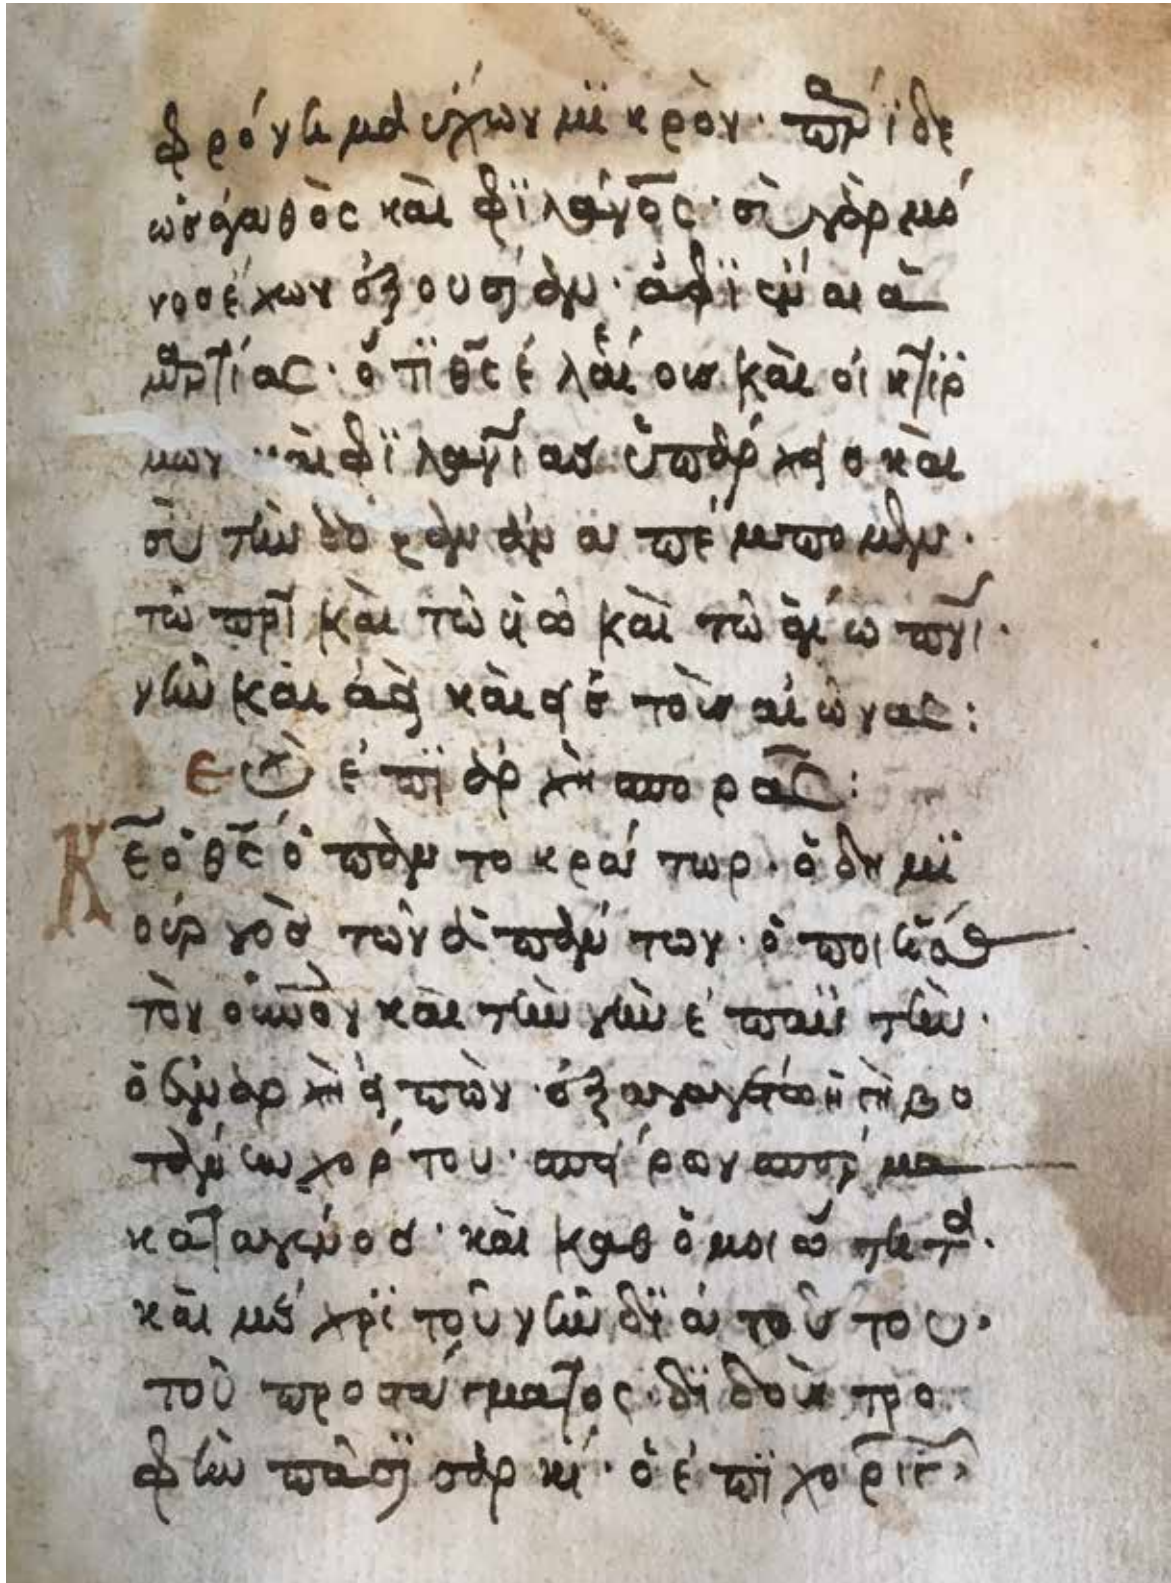 φρόνημα ἔχων μϊκρὸν· πάρϊδε
ὡς ἀγαθὸς καὶ φϊλάνος· σὺ γὰρ μό
νος ἔχων ἐξουσίαν· ἀφϊέναι ἁ
μαρτίας· ὅτϊ θς ἐλέους καὶ οἰκτϊρ
μων· καὶ φϊλανίας ὑπάρχεις καὶ
σοὶ τὴν δόξαν ἀναπέμπομεν·
τῶ πρι καὶ τῶ υω καὶ τῶ ἁγίω πνι·
νῦν καὶ ἀεὶ καὶ εἰς τοὺς αἰώνας:
εὐχὴ ἐπϊ ἀρχὴ σπορας:
Κε ὁ θς ὁ παντοκράτωρ· ὁ δημϊ
ουργὸς τῶν ἁπάντων· ὁ ποιήσας
τὸν οὐνον καὶ τὴν γὴν ἐπ αὐτὴν·
ὁ ἐν ἀρχὴ εἰπὼν· ἐξαγαγέτω ἡ γὴ βο
τάνην χόρτου· σπείρων σπέρμα
κατα γένος· καὶ καθ ὁμοιότητα·
καὶ μέχρϊ τοῦ νῦν δϊα τούτου·
τοῦ προστάγματος· δϊδοὺς τρο
φὴν πάση σαρκί· ὁ ἐπϊχορη